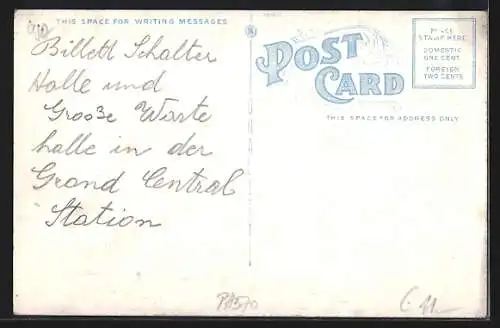 THIS SPACE FOR WRITING MESSAGES
Billett Schalter
Halle und
Grosse Warte
halle in der
Grand Central
Station
POST
CARD
PLACE
STAMP HERE
DOMESTIC
ONE CENT
FOREIGN
TWO CENTS
THIS SPACE FOR ADDRESS ONLY